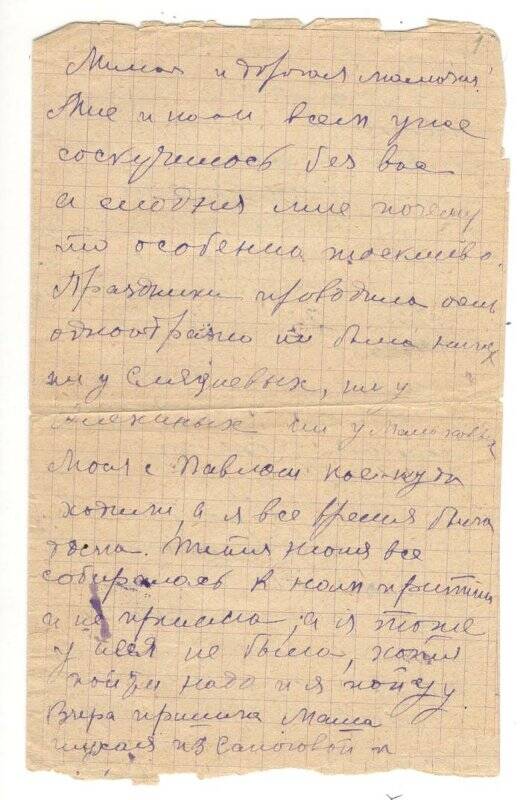 1
Милая и дорогая мамочка!
Мне и нам всем уже
соскучилось без вас
а сегодня мне почему
то особенна тоскливо.
Праздники проводила очень
однообразно не была ни у
ни у Смядневых, ни у
Алехиных ни у Мальковых
Моля с Павлом кое-куда
ходили, а я все время была
дома. Тетя Нюня все
собиралась к нам притти
и не пришла, а я тоже
у нея не была, хотя
пойти надо и я пойду
Вчера пришла Маша
из Салоговой и